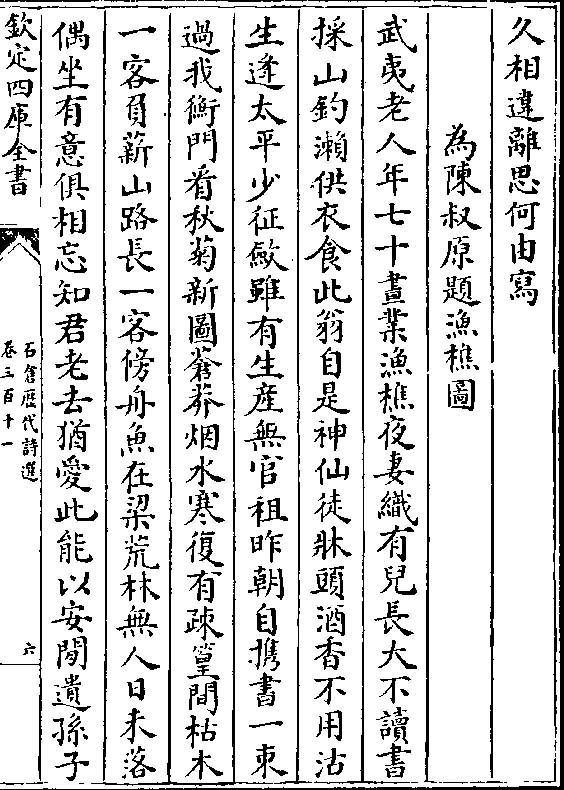 久相違離思何由寫
為陳叔原題漁樵圖
武夷老人年七十晝業漁樵夜妻織有兒長大不讀書
採山釣瀨供衣食此翁自是神仙徒牀頭酒香不用沽
生逢太平少征斂雖有生産無官租昨朝自携書一束
過我衡門看秋菊新圖蒼莽烟水寒復有疎篁間枯木
一客負薪山路長一客傍舟魚在梁荒林無人日未落
偶坐有意俱相忘知君老去猶愛此能以安閒遺孫子
欽定四庫全書
石倉歴代詩選
卷三百十一
六